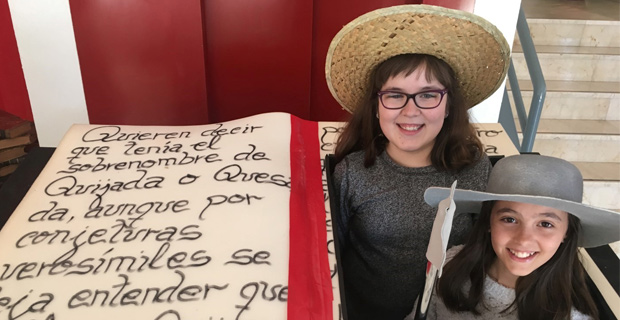 Quieren decir
que tenía el
sobrenombre de
Quijada o Quesa
da, aunque por
conjeturas
verosímiles se
deja entender que